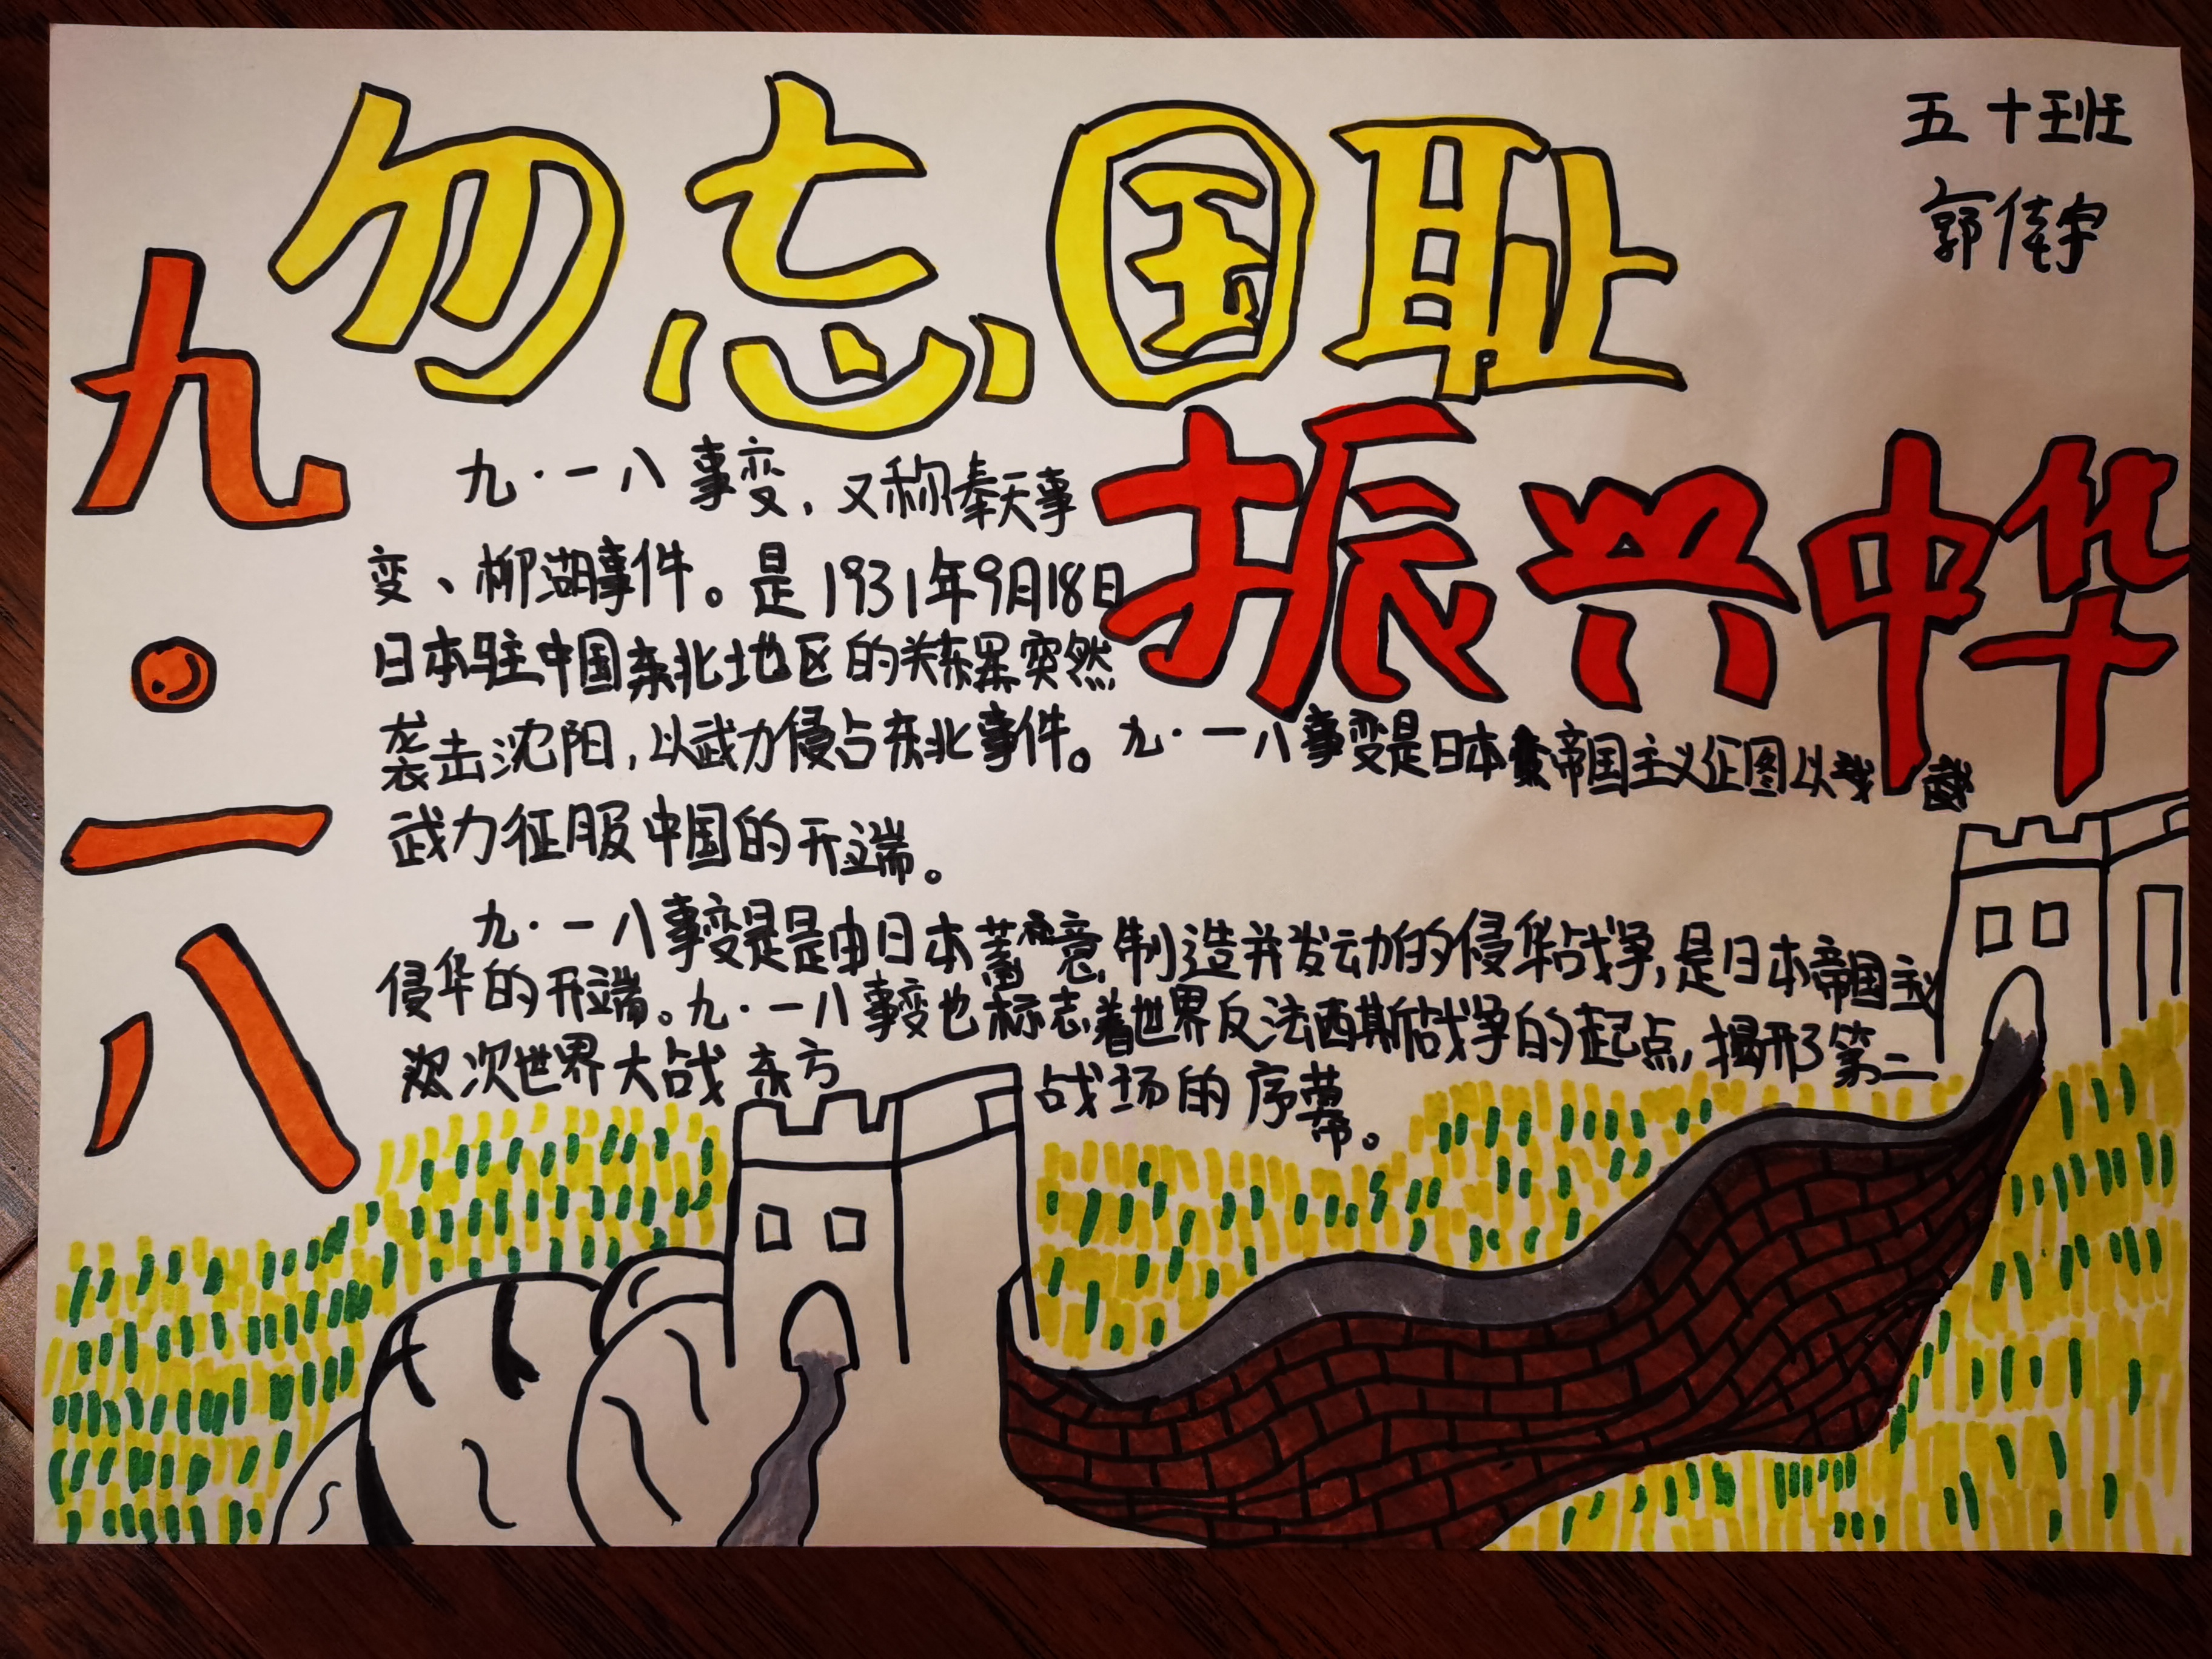 勿忘国耻
五十班
郭倩宇
九·一八
振兴中华
九·一八事变,又称奉天事
变、柳湖事件。是1931年9月18日
日本驻中国东北地区的关东军突然
袭击沈阳,以武力侵占东北事件。九·一八事变是日本帝国主义征图以武
武力征服中国的开端。
九·一八事变是是由日本蓄意制造并发动的侵华战争,是日本帝国主义
侵华的开端。九·一八事变也标志着世界反法西斯战争的起点,揭开了第二
次世界大战东方战场的序幕。